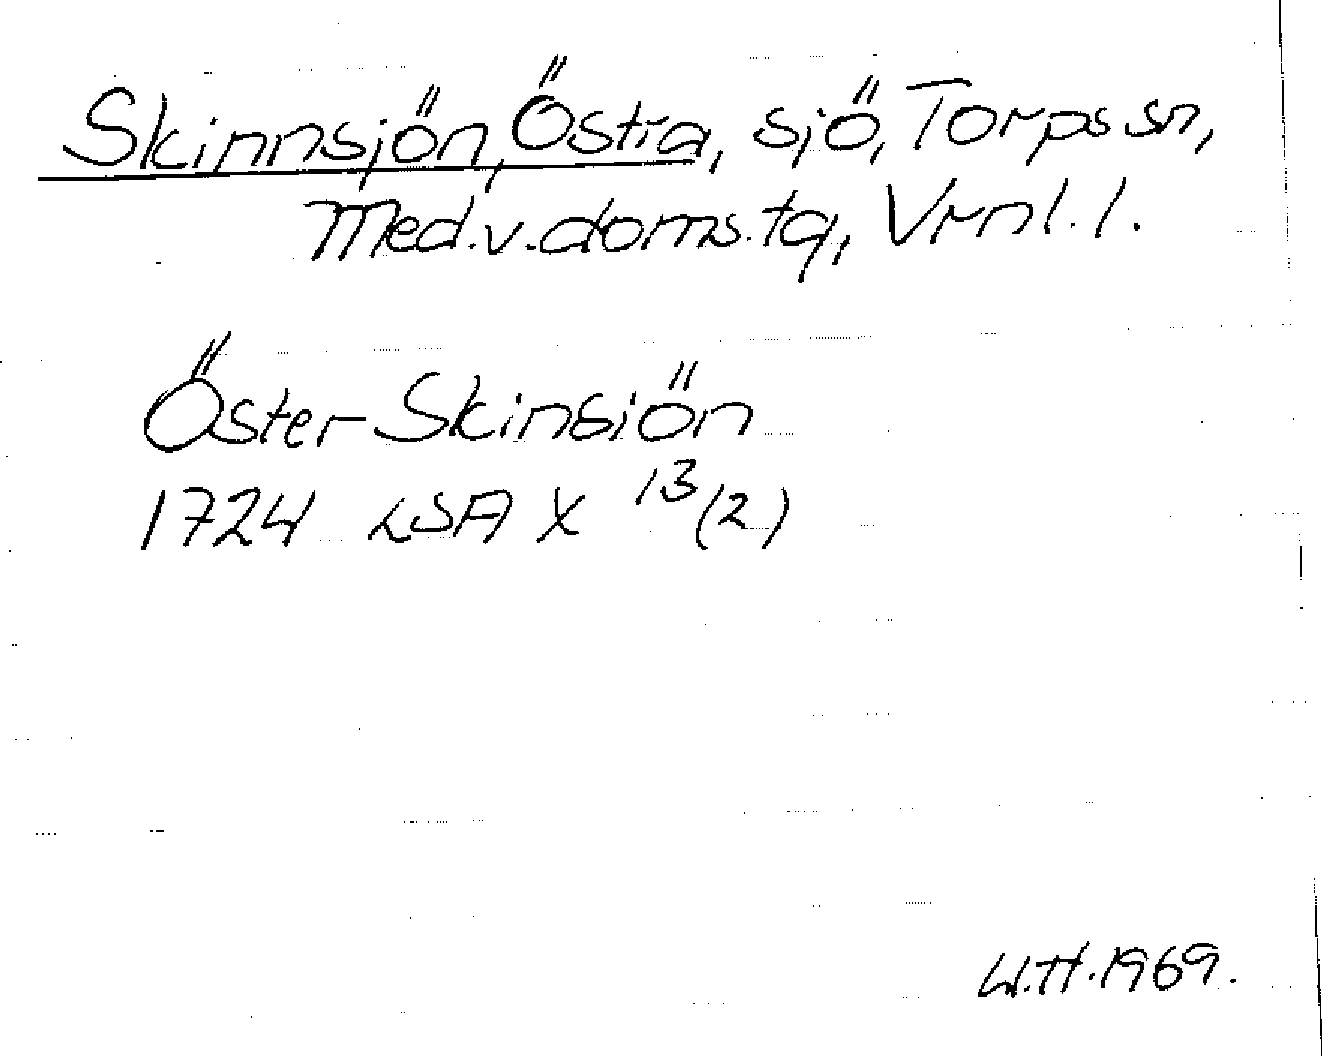 Skinnsjön, Östra, sjö, Torps sn,
Med.v.doms.tg, Vrnl. l.
Öster-Skinsiön
1724 LSA X 13(2)
W.H.1969.